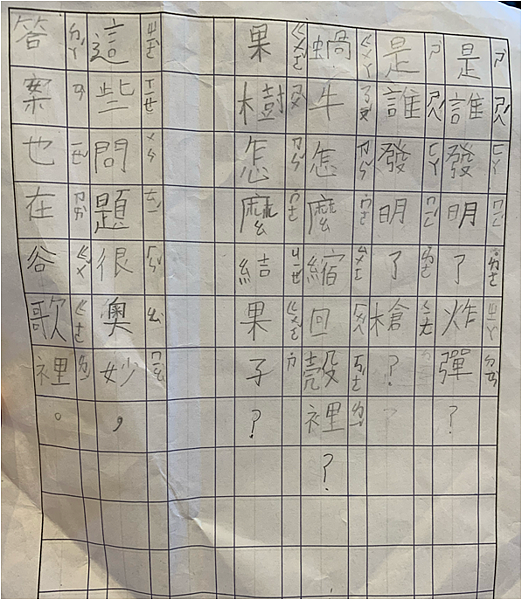 是誰發明了炸彈？
是誰發明了槍？
蝸牛怎麼縮回殼裡？
果樹怎麼結果子？
這些問題很奧妙，
答案也在谷歌裡。